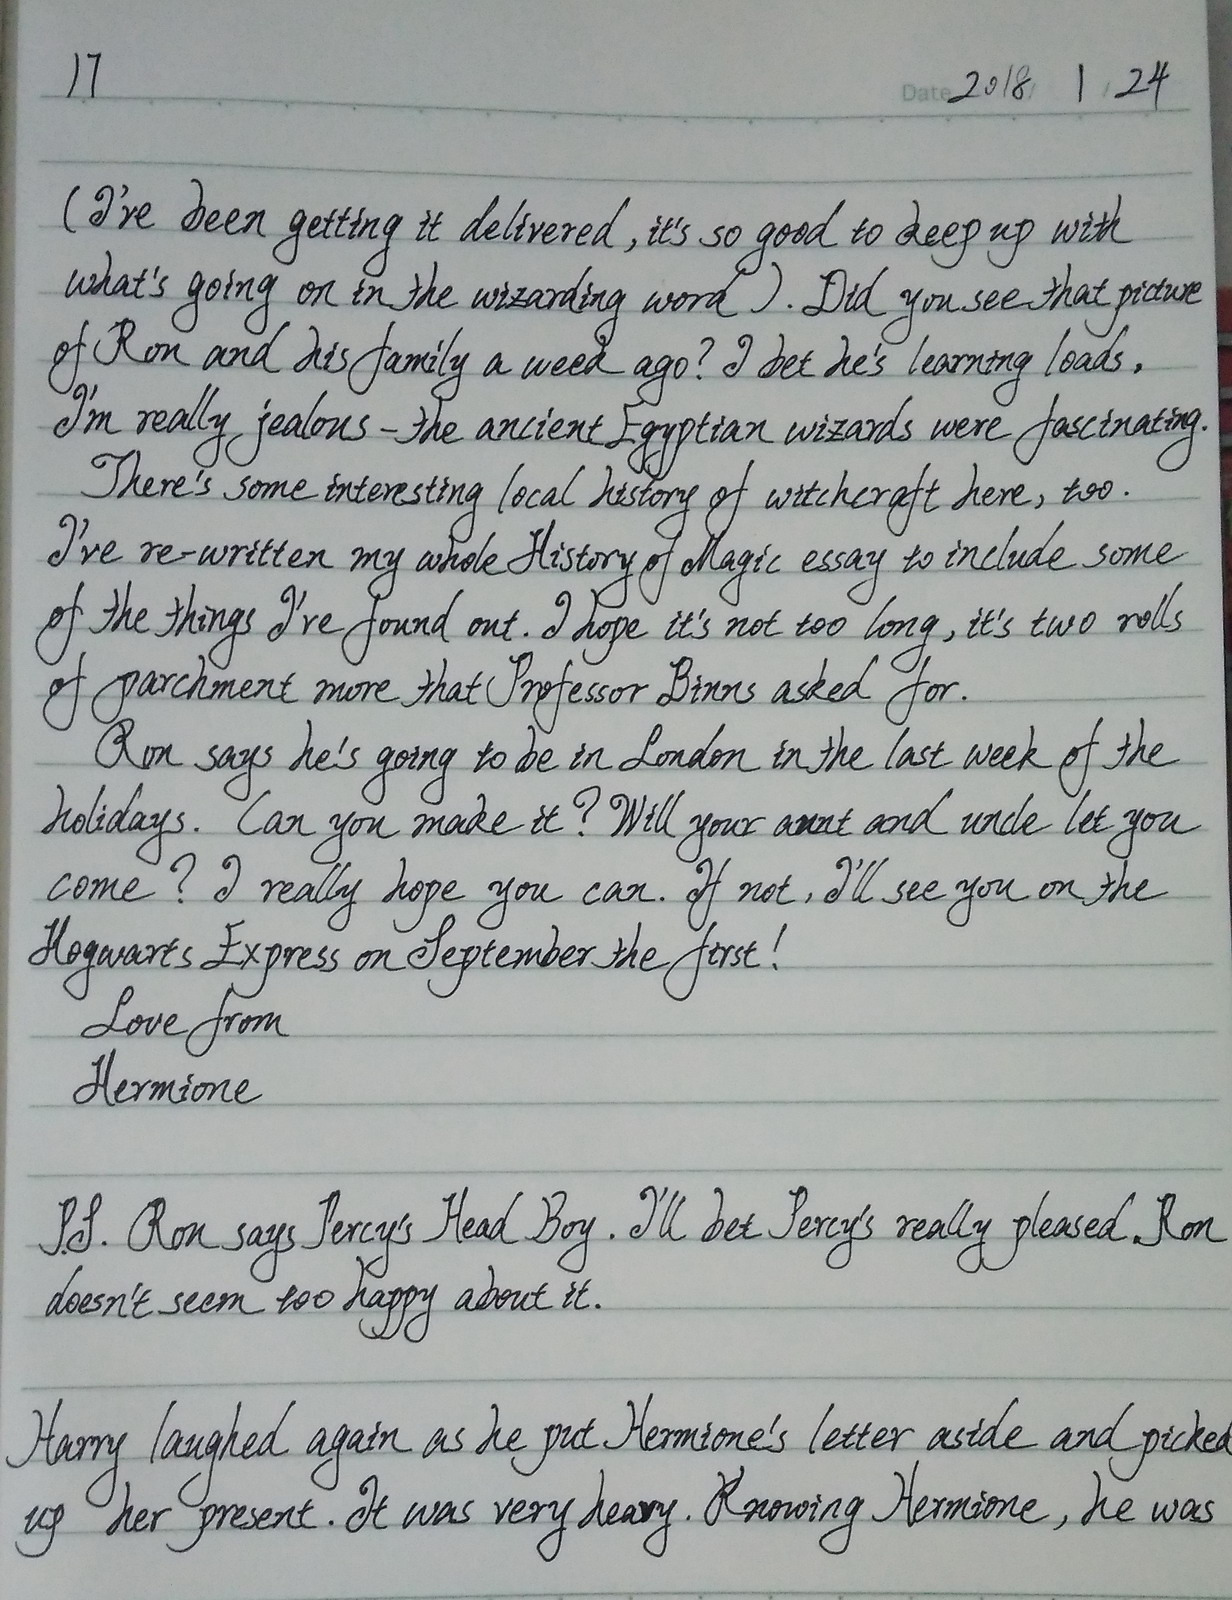 17
Date 2018 / 1 / 24
(I've been getting it delivered, it's so good to keep up with
what's going on in the wizarding word). Did you see that picture
of Ron and his family a week ago? I bet he's learning loads.
I'm really jealous - the ancient Egyptian wizards were fascinating.
There's some interesting local history of witchcraft here, too.
I've re-written my whole History of Magic essay to include some
of the things I've found out. I hope it's not too long, it's two rolls
of parchment more that Professor Binns asked for.
Ron says he's going to be in London in the last week of the
holidays. Can you make it? Will your aunt and uncle let you
come? I really hope you can. If not, I'll see you on the
Hogwarts Express on September the first!
Love from
Hermione
P.S. Ron says Percy's Head Boy. I'll bet Percy's really pleased. Ron
doesn't seem too happy about it.
Harry laughed again as he put Hermione's letter aside and picked
up her present. It was very heavy. Knowing Hermione, he was